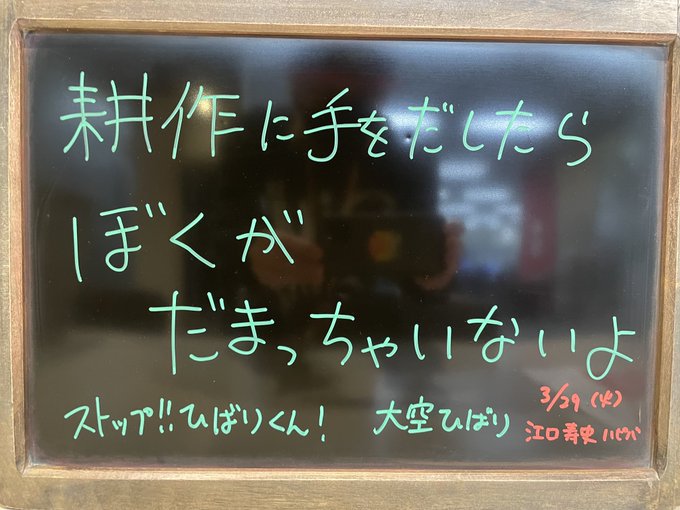 耕作に手をだしたら
ぼくが
だまっちゃいないよ
ストップ!!ひばりくん! 大空ひばり
3/29 (火)
江口寿史 ハピバ